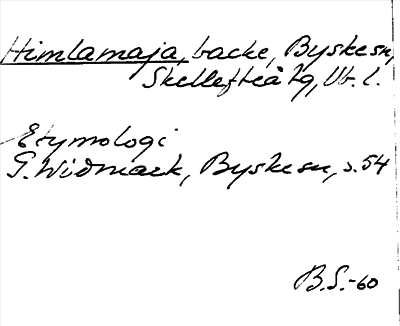 Himlamaja, backe, Byskesn,
Skellefteå tg, Vb. l.
Etymologi
G. Widmark, Byskesn, s. 54
B.S.-60